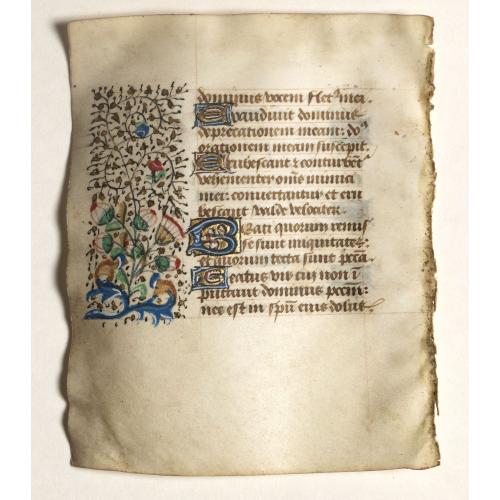 dominus vocem fletꝰ mei.
Exaudivit dominus
deprecationem meam: doꝰ
orationem meam suscepit.
Erubescant ⁊ conturbēt
vehementer om̄s inimici
mei: convertantur et eru
bescant valde velociter.
Beati quorum remis
se sunt iniquitates:
et quorum tecta sunt pctā.
Beatus vir cui non ī
putavit dominus pctm̄:
nec est in spū eius dolus.